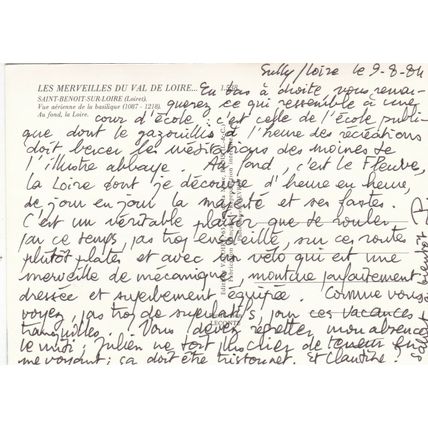 Sully/Loire le 9-8-84
LES MERVEILLES DU VAL DE LOIRE...
SAINT-BENOIT-SUR-LOIRE (Loiret).
Vue aérienne de la basilique (1067 - 1218).
Au fond, la Loire.
En bas à droite, vous remar-
querez ce qui ressemble à une
cour d'école ; c'est celle de l'école publi-
que dont le gazouillis à l'heure des récréations
doit bercer les méditations des moines de
l'illustre abbaye. Au fond, c'est le Fleuve,
la Loire dont je découvre d'heure en heure,
de jour en jour la majesté et ses fastes.
C'est un véritable plaisir que de rouler
par ce temps, pas trop ensoleillé, sur ces routes
plutôt plates et avec un vélo qui est une
merveille de mécanique, monture parfaitement
dressée et superbement équipée. Comme vous
voyez, pas trop de superlatifs, pour ces vacances
tranquilles. Vous devez regretter mon absence
le midi ; Julien ne doit plus
me voyant ; ça doit être tristounet. Et Claudine ?